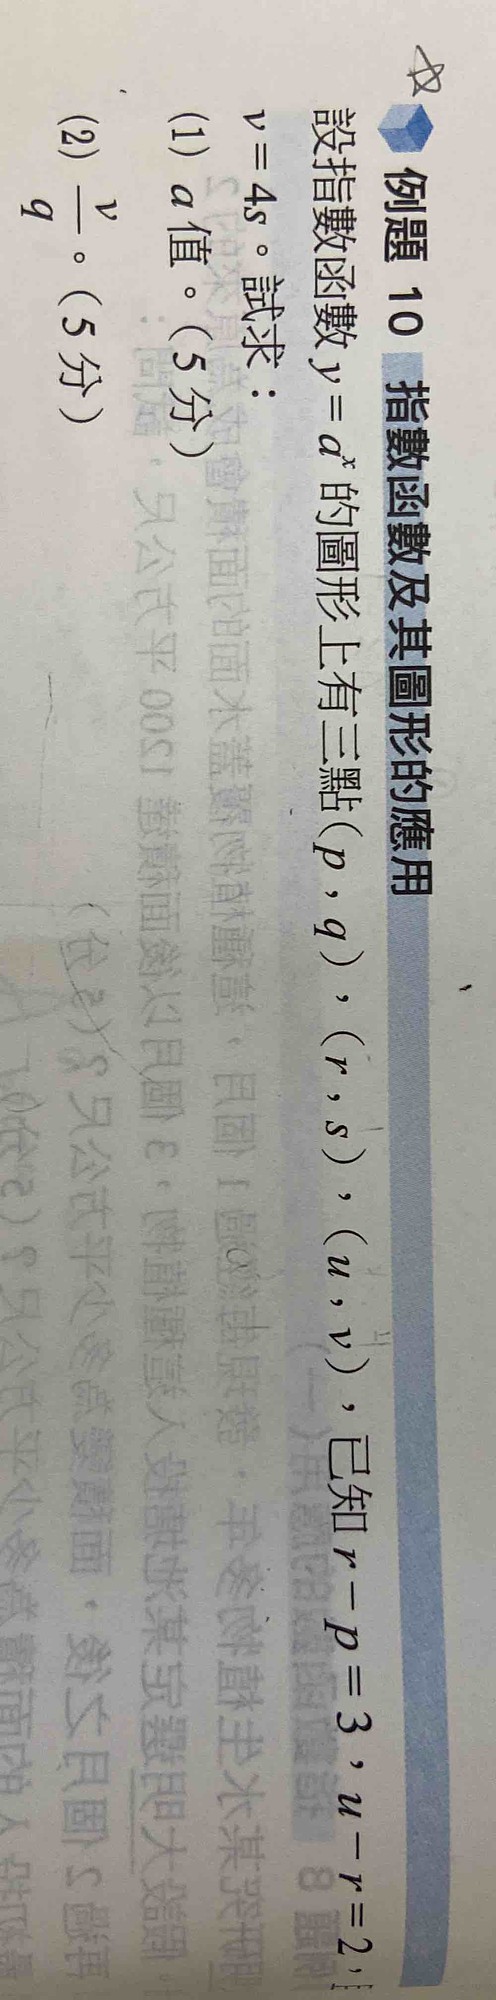 例題 10 指數函數及其圖形的應用
設指數函數 y = aˣ 的圖形上有三點(p，q)，(r，s)，(u，v)，已知 r − p = 3，u − r = 2，
v = 4s。試求：
(1) a 值。(5 分)
(2) v/q。(5 分)